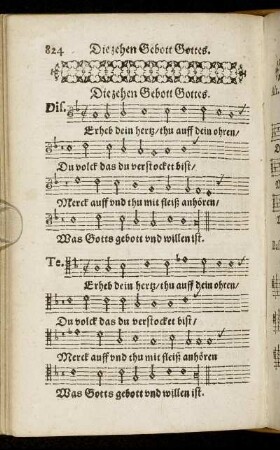 824 Die zehen Gebott Gottes.
Die zehen Gebott Gottes.
Dis.
Erheb dein hertz/ thu auff dein ohren/
Du volck das du verstocket bist/
Merck auff vnd thu mit fleiß anhören/
Was Gotts gebott vnd willen ist.
Te.
Erheb dein hertz/ thu auff dein ohren/
Du volck das du verstocket bist/
Merck auff vnd thu mit fleiß anhören
Was Gotts gebott vnd willen ist.